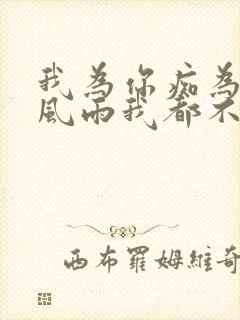 我為你痴為
風雨我都不
西布羅姆維奇